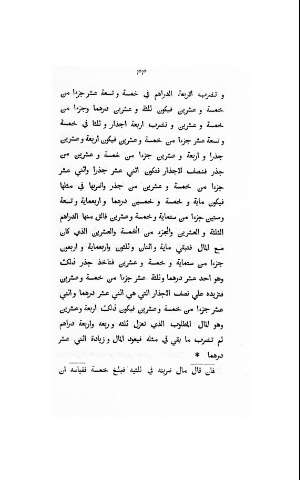 ٣٩
و تضرب الاربعة الدراهم في خمسة و تسعة عشر جزءا من
خمسة و عشرين فيكون ثلثة و عشرين درهما وجزءا من
خمسة و عشرين و تضرب اربعة اجذار و ثلثا في خمسة
و تسعة عشر جزءا من خمسة و عشرين فيكون اربعة وعشرين
جذرا و اربعة و عشرين جزءا من خمسة و عشرين من
جذر فنصف الاجذار فتكون اثني عشر جذرا واثني عشر
جزءا من خمسة و عشرين من جذر واضربها في مثلها
فيكون ماية و خمسة و خمسين درهما واربعماية و تسعة
وستين جزءا من ستماية و خمسة و عشرين فالق منها الدراهم
الثلثة و العشرين والجزء من الخمسة والعشرين الذي كان
مع المال فتبقي ماية واثنان وثلثون واربعماية و اربعون
جزءا من ستماية و خمسة و عشرين فتاخذ جذر ذلك
وهو احد عشر درهما وثلثة عشر جزءا من خمسة و عشرين
فتزيده علي نصف الاجذار التي هي اثني عشر درهما واثني
عشر جزءا من خمسة وعشرين فيكون ذلك اربعة وعشرين
وهو المال المطلوب الذي تعزل ثلثه و ربعه واربعة دراهم
ثم تضرب ما بقي في مثله فيعود المال و زيادة اثني عشر
درهما *
فان قال مال ضربته في ثلثيه فبلغ خمسة فقياسه ان